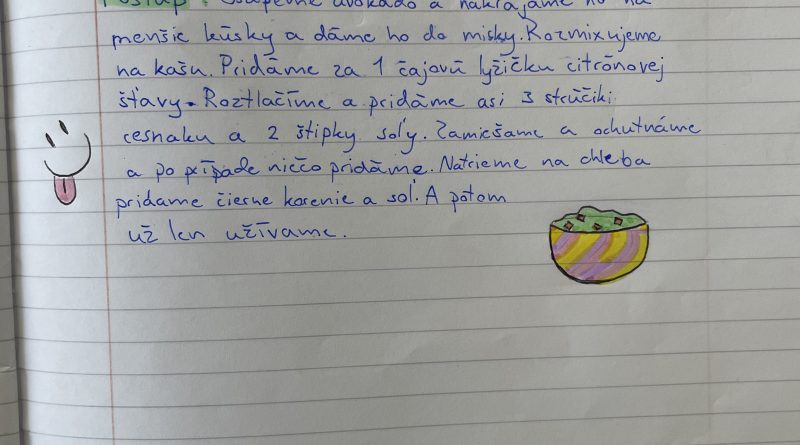 Postup: Ošúpeme avokádo a nakrájame ho na
menšie kúsky a dáme ho do misky. Rozmixujeme
na kašu. Pridáme za 1 čajovú lyžičku citrónovej
šťavy. Roztlačíme a pridáme asi 3 strúčiki
cesnaku a 2 štipky soľy. Zamiešame a ochutnáme
a po prípade niečo pridáme. Natrieme na chleba
pridame čierne korenie a soľ. A potom
už len užívame.